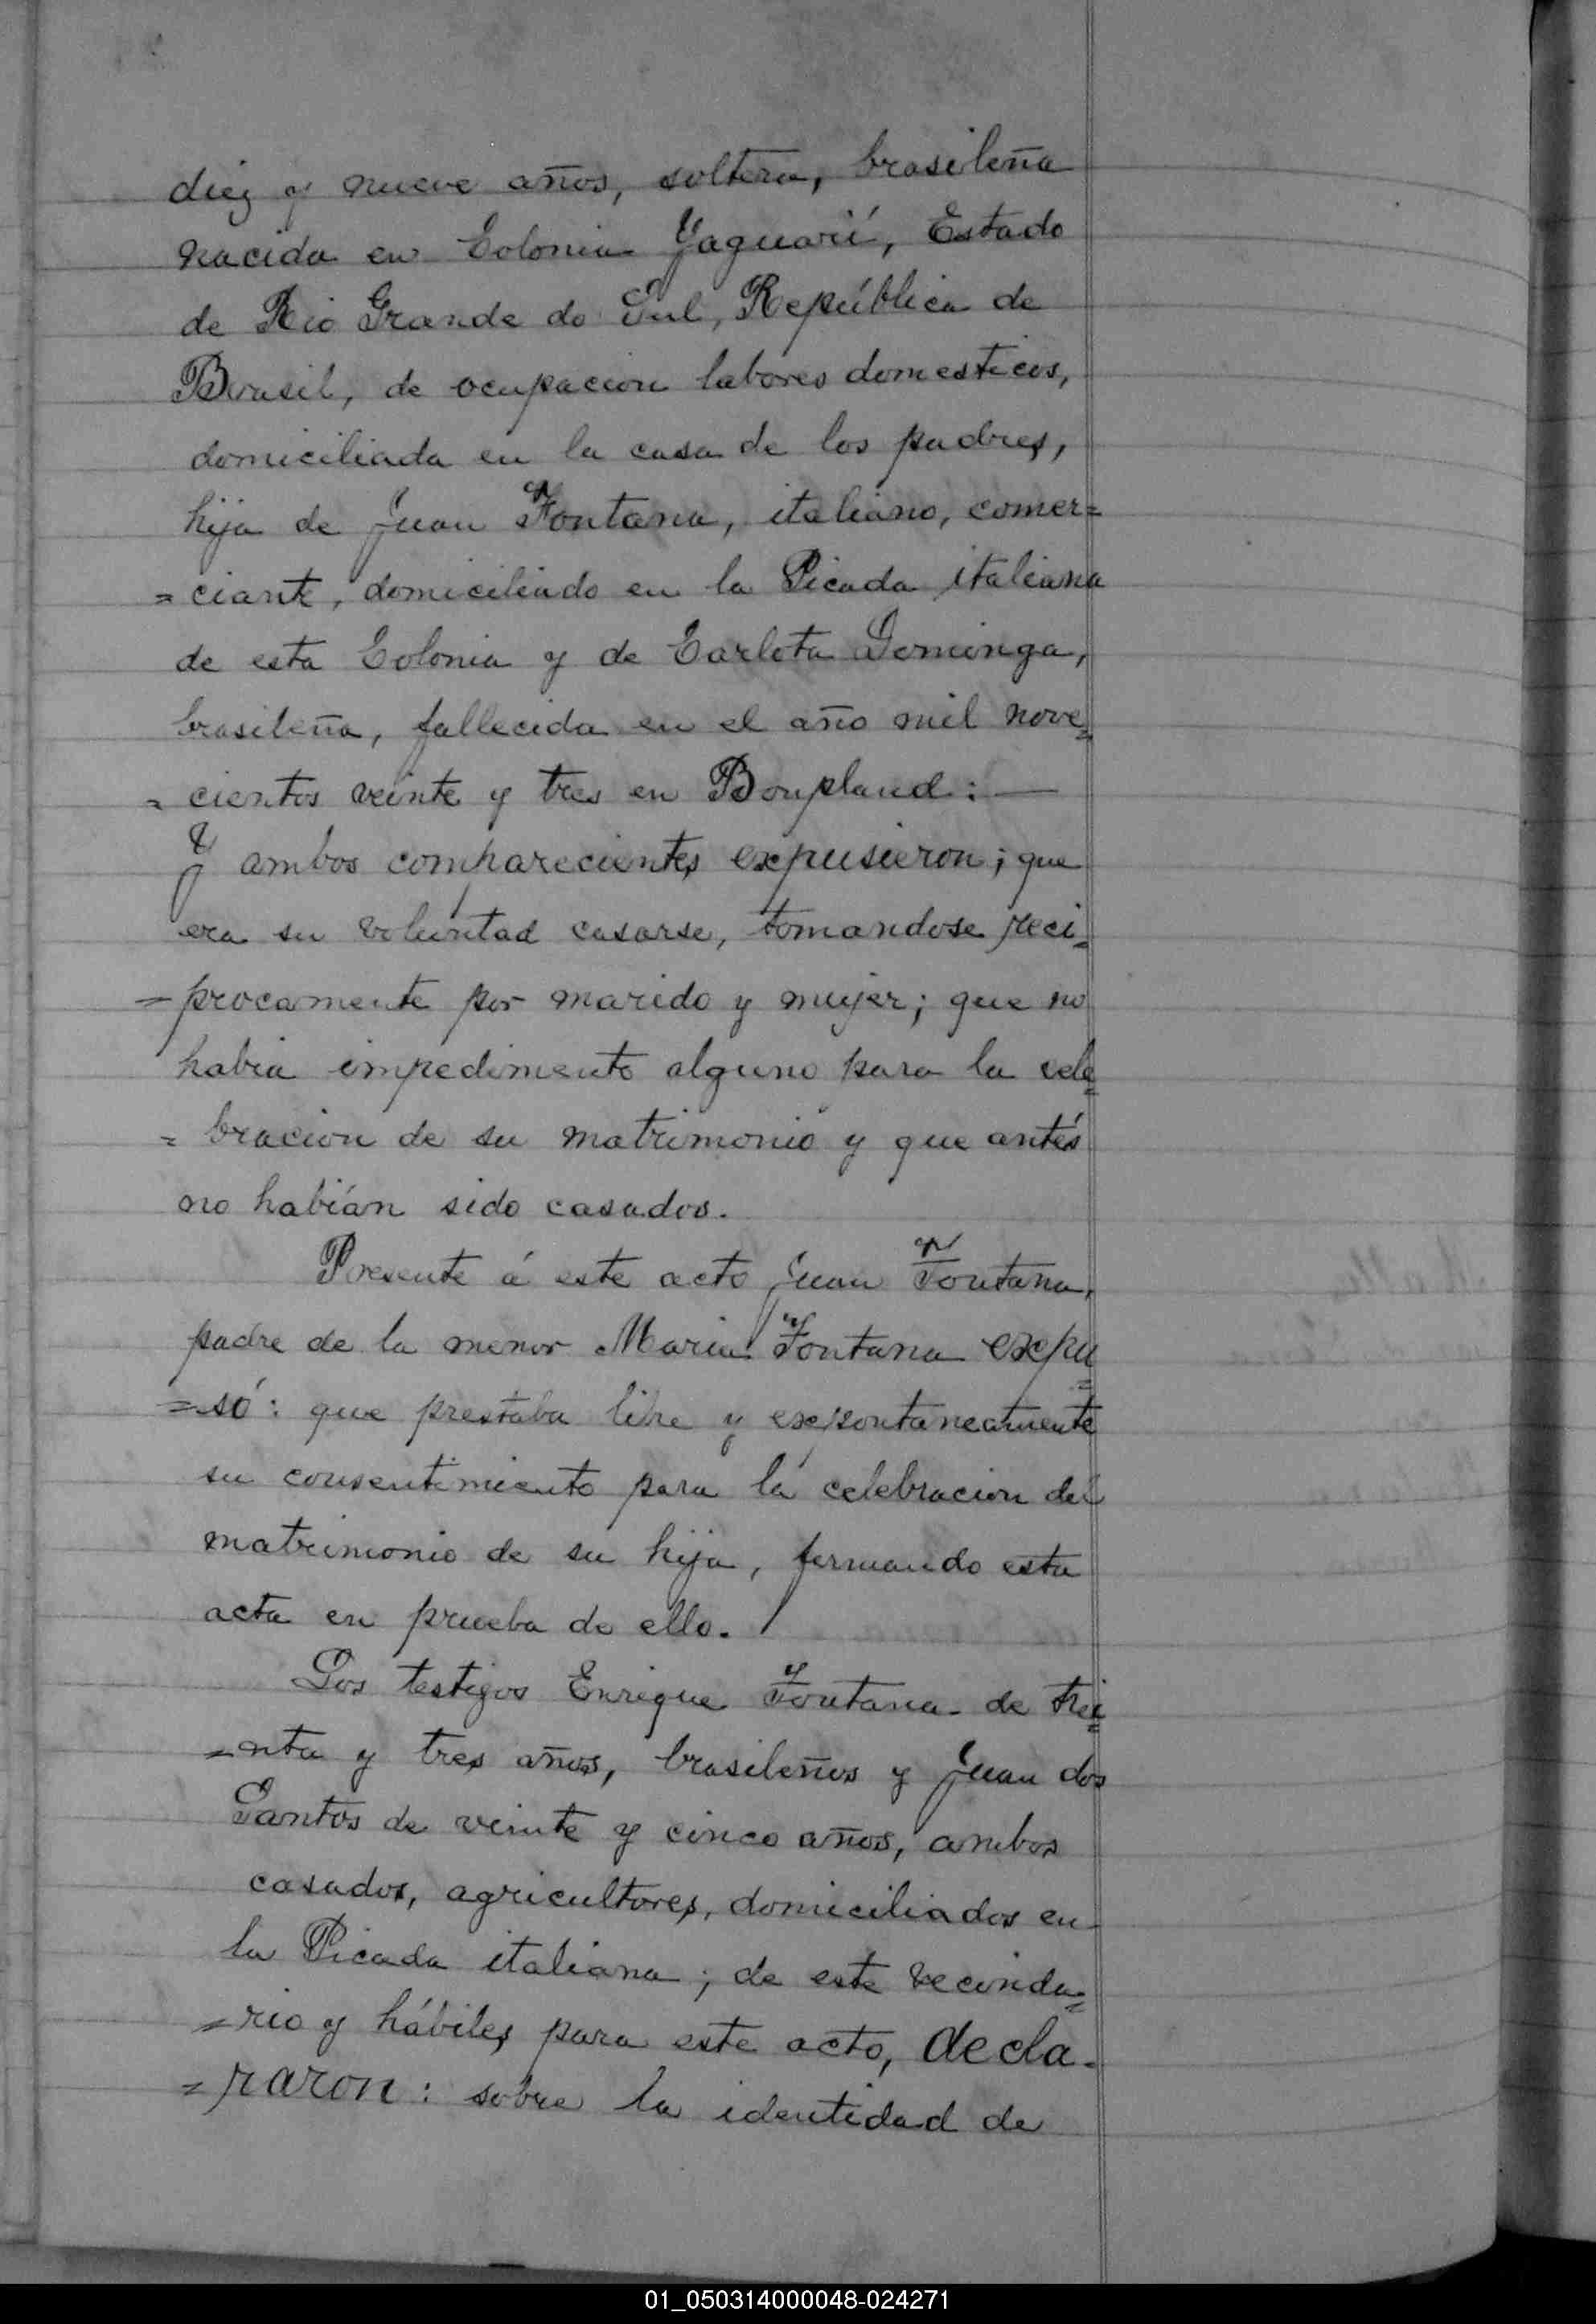 diez y nueve años, soltera, brasileña
nacida en Colonia Yaguarí, Estado
de Rio Grande do Sul, República de
Brasil, de ocupacion labores domesticos,
domiciliada en la casa de los padres,
hija de Juan Fontana, italiano, comer=
=ciante, domiciliado en la Picada italiana
de esta Colonia y de Carlota Dominga,
brasileña, fallecida en el año mil nove=
=cientos veinte y tres en Bonpland: —
Y ambos comparecientes expusieron; que
era su voluntad casarse, tomandose reci=
=procamente por marido y mujer; que no
habia impedimento alguno para la cele=
=bracion de su matrimonio y que antés
no habían sido casados.
Presente á este acto Juan Fontana,
padre de la menor Maria Fontana expu=
=só: que prestaba libre y expontaneamente
su consentimiento para la celebracion del
matrimonio de su hija, fermando esta
acta en prueba de ello.
Los testigos Enrique Fontana de trei=
=nta y tres años, brasileños y Juan dos
Santos de veinte y cinco años, ambos
casados, agricultores, domiciliados en
la Picada italiana; de este vecinda=
=rio y hábiles para este acto, decla-
=raron: sobre la identidad de
01_050314000048-024271